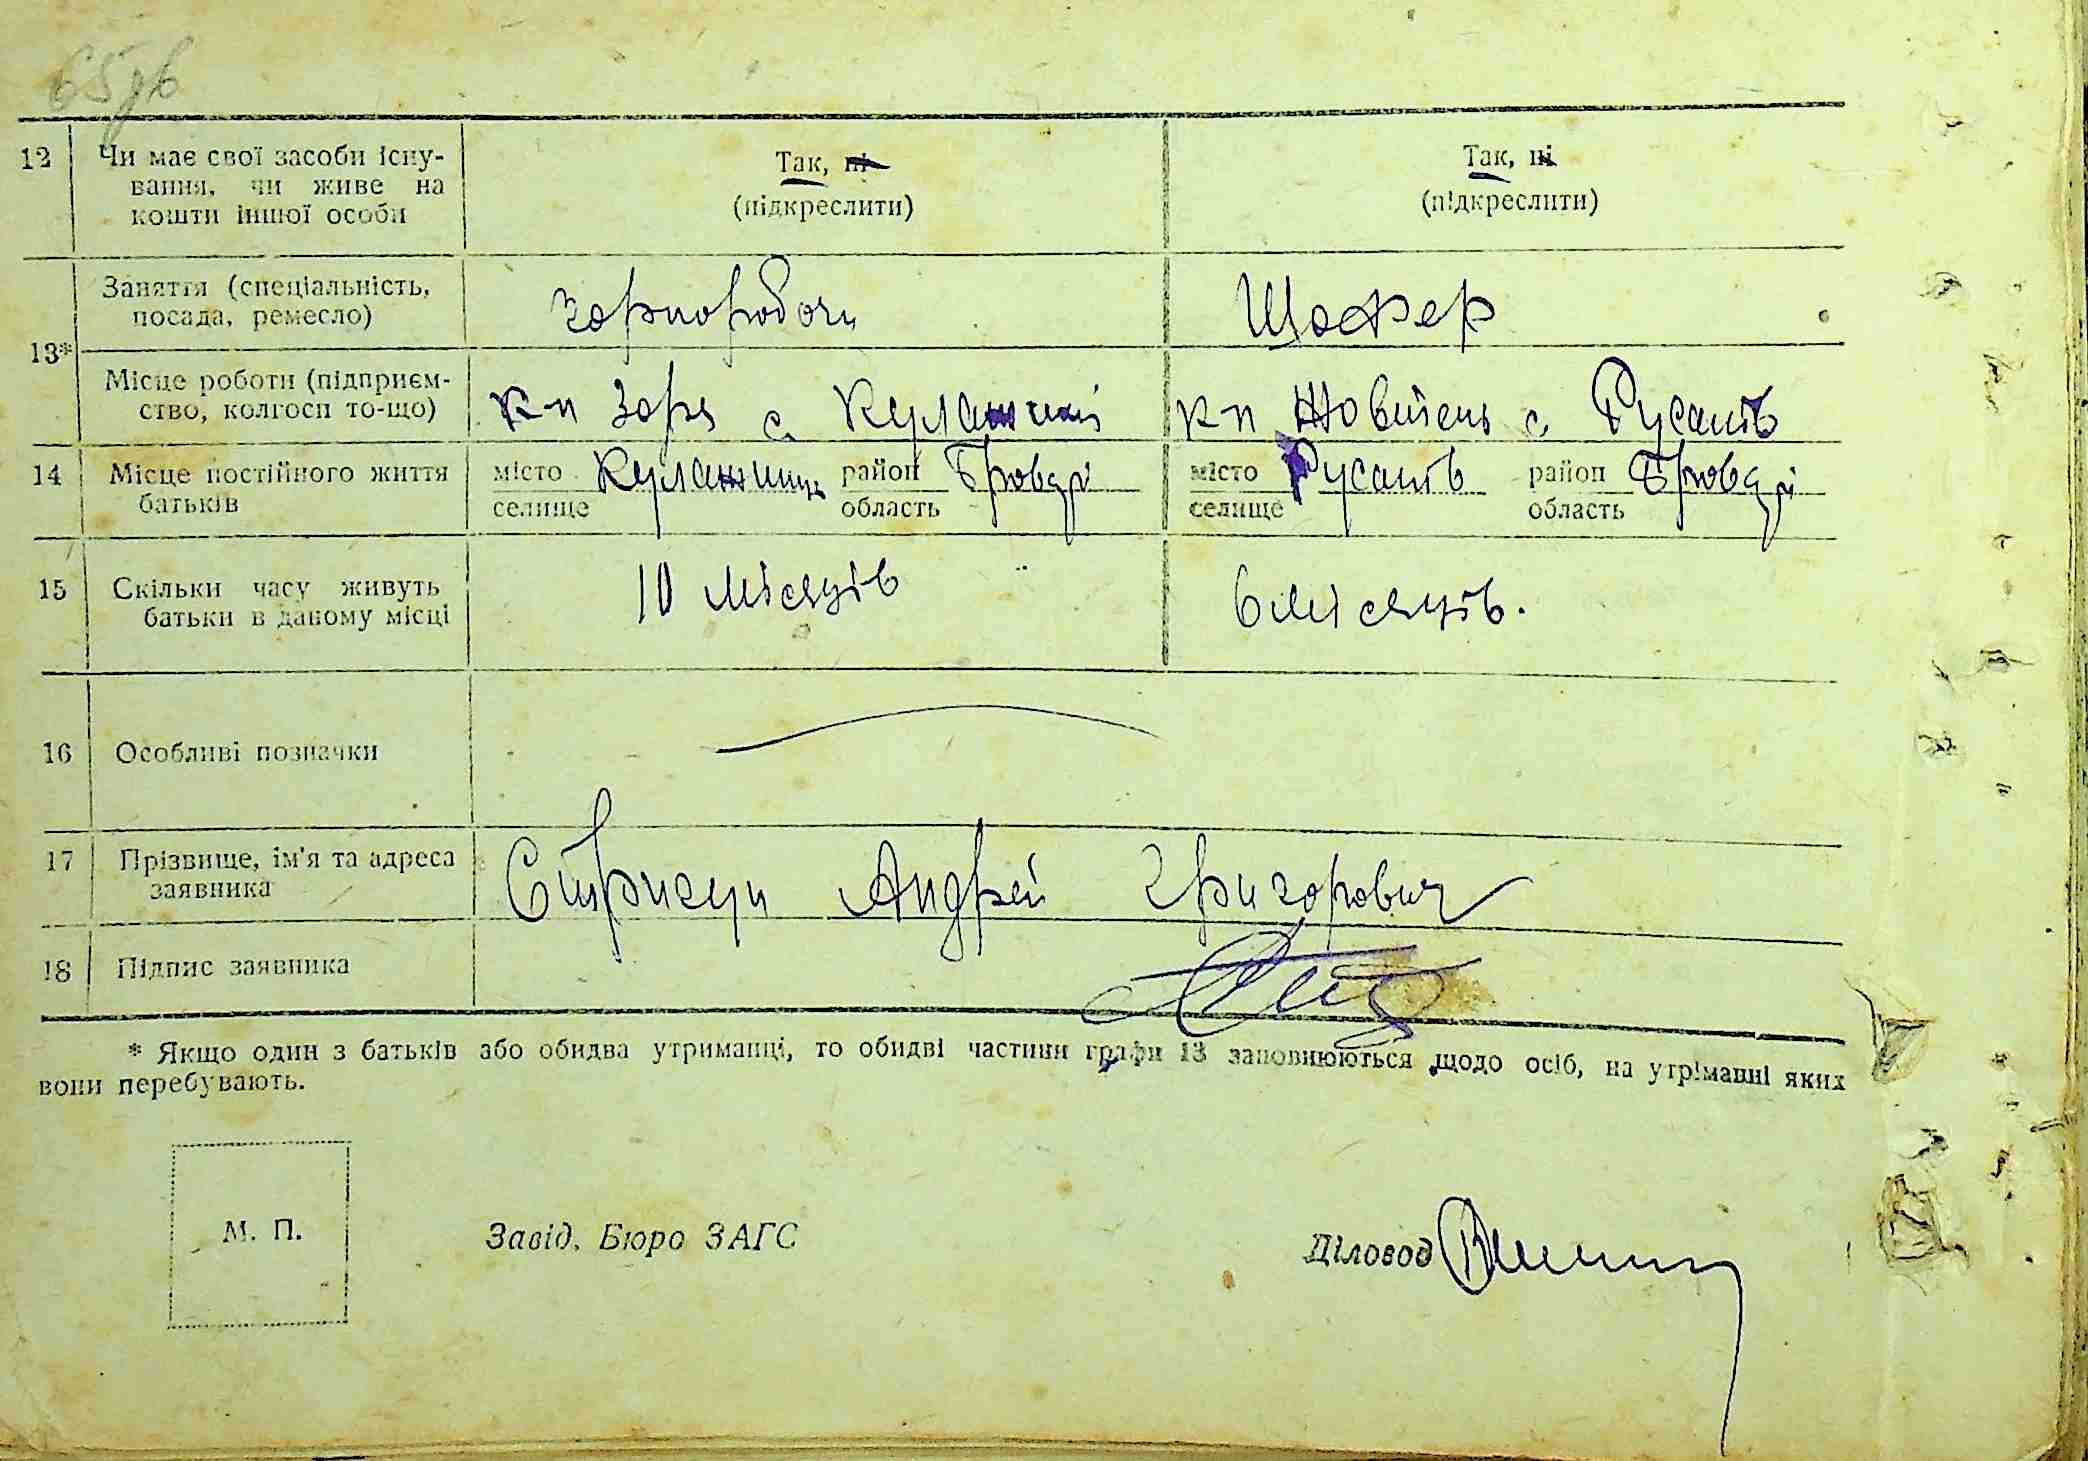 12 Чи має свої засоби існу-
вання, чи живе на
кошти іншої особи
Так, ні
(підкреслити)
Так, ні
(підкреслити)
13*
Заняття (спеціальність,
посада, ремесло)
чорноробочи
Шофер
Місце роботи (підприєм-
ство, колгосп то-що)
к-п Зоря с
кп Жовтень с. Русанів
14 Місце постійного життя
батьків
місто
селище
район Бровари
область
місто Русанів
селище
район Бровари
область
15 Скільки часу живуть
батьки в даному місці
10 місяців
6 місяців.
16 Особливі позначки
17 Прізвище, ім'я та адреса
заявника
Стригун Андрей Григорович
18 Підпис заявника
* Якщо один з батьків або обидва утриманці, то обидві частини графи 13 заповнюються щодо осіб, на утріманні яких
вони перебувають.
М. П.
Завід. Бюро ЗАГС
Діловод